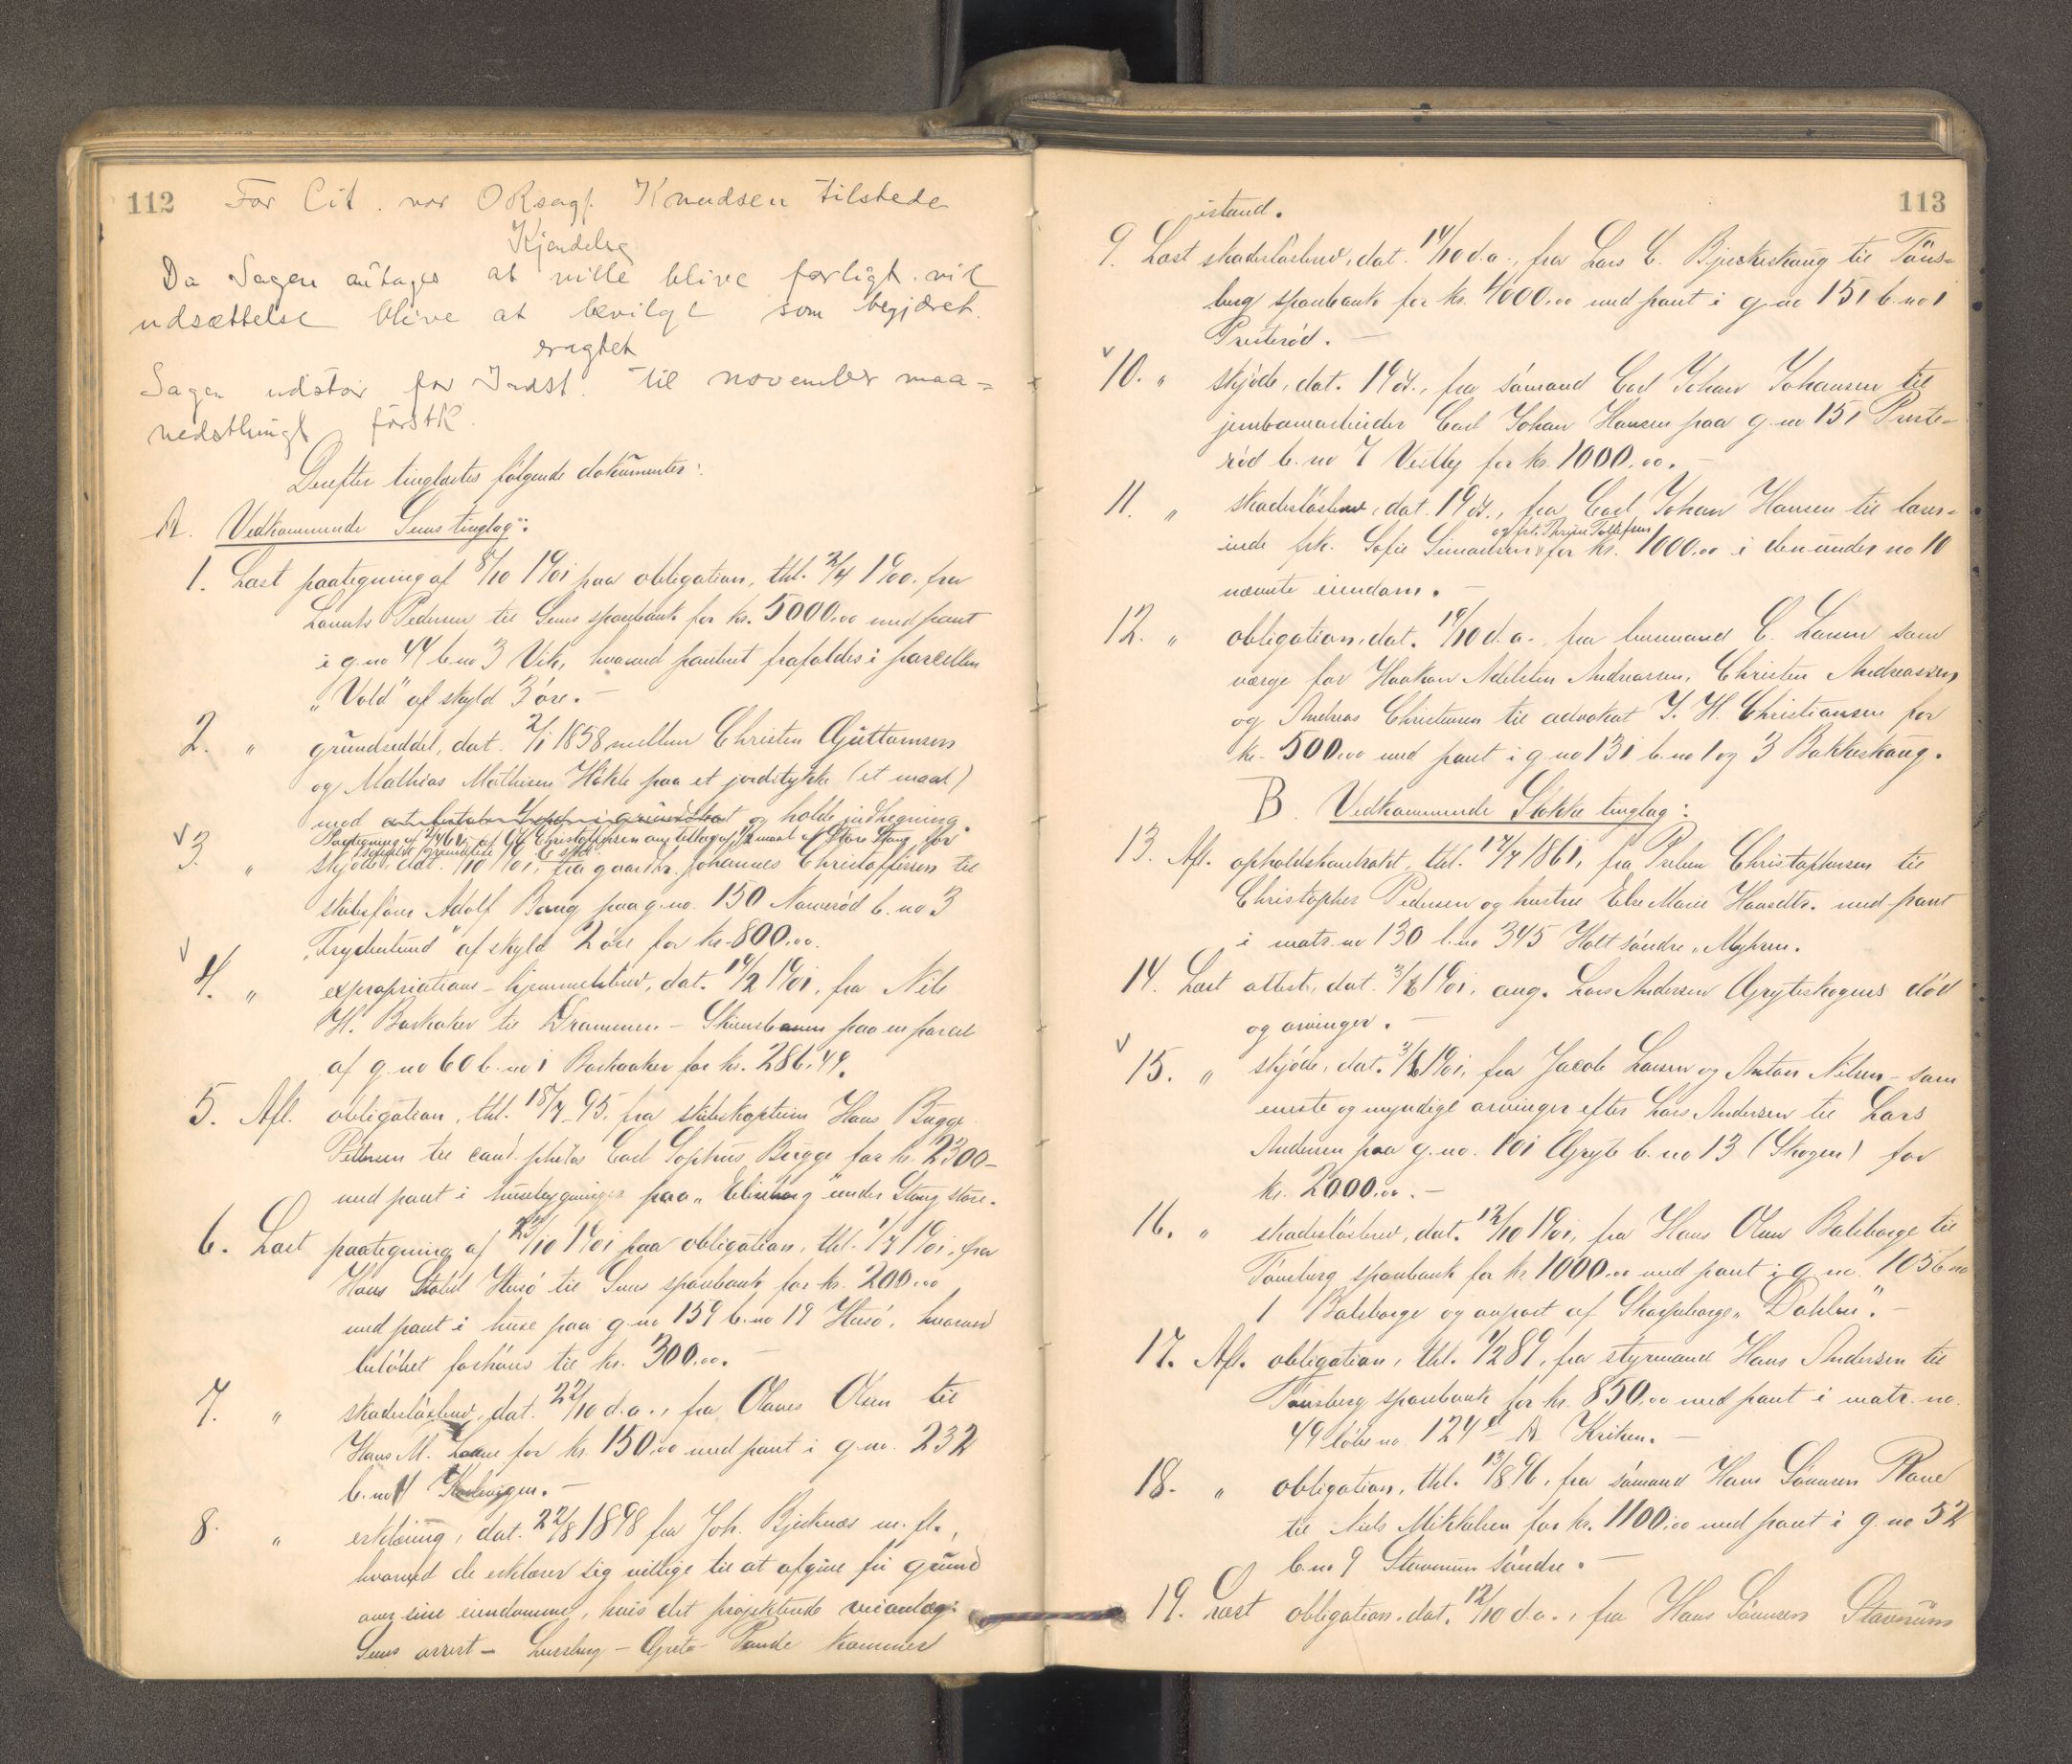 112
For Cit. var O R sagf. Knudsen tilstede
Kjendelse
Da Sagen antages at ville blive forligt vil
udsættelse blive at bevilge som begjæret.
eragtet
Sagen udstaar for Indst. til november maa-
nedsthingt förstk.
Derefter tinglæstes følgende dokumenter:
A. Vedkommende Sems tinglag:
1. Læst paategning af 8/10 1901 paa obligation, thl. 2/4 1900. fra
Laurits Pedersen til Sems sparebank for kr. 5000.00 med pant
i g.no 44 b.no 3 Vik, hvorved pantet frafaldes i parcellen
"Vold" af skyld 3 øre. —
2. " grundseddel, dat. 2/1 1858 mellem Christen Guttormsen
og Mathias Mathisen Hökle paa et jordstykke (et maal)
med og holde indhegning.
Paategning af Christoffersen ang. tillæg af 1/2 maal af Store Stang for
3. " skjøde, dat. /10 1901, fra gaardbr. Johannes Christoffersen til
skibsfører Adolf Bang paa g.no. 150 Narverød b.no 3
"Frydenlund" af skyld 2 øre for kr. 800.00.
4. " expropriations-hjemmelsbrev, dat. 14/2 1901, fra Nils
H. Barkaker til Drammen-Skiensbanen paa en parcel
af g.no 60 b.no 1 Barkaaker for kr. 286.49.
5. Afl. obligation, thl. 18/7-95. fra skibskaptein Hans Bugge
Pettersen til cand. philos Carl Sophus Bugge for kr. 2300-
med pant i husebygninger paa "Elineborg" under Stang store.
6. Læst paategning af 23/10 1901 paa obligation, thl. 1/7 1901, fra
Hans Husø til Sems sparebank for kr. 200.00
med pant i huse paa g.no 159 b.no 19 Husø, hvorved
beløbet forhøies til kr. 300.00. —
7. " skadesløsbrev, dat. 22/10 d.a., fra Olaves Olsen til
Hans M. for kr. 150.00 med pant i g.no. 232
b.no 4 —
8. " erklæring, dat. 22/8 1898 fra Joh. Bjerknæs m. fl.,
hvorved de erklærer sig villige til at afgive fri grund
over sine eiendomme, hvis det projekterede veianlæg:
Sems arrest - - Græte- Rande kommer
113
istand.
9. Læst skadesløsbrev, dat. 14/10 d.a., fra Lars C. Bjerkeskaug til Töns-
berg sparebank for kr. 4000.00 med pant i g.no 151 b.no 1
Presterød. —
10. " skjøde, dat. 19 ds., fra sømand Carl Johan Johansen til
jernbanearbeider Carl Johan Hansen paa g.no 151 Preste-
rød b.no 7 Vestby for kr. 1000.00. —
11. " skadesløsbrev, dat. 19 ds., fra Carl Johan Hansen til lærer-
og frk. Thrine Tollefsen
inde frk. Sofie Simonsen for kr. 1000.00 i den under no 10
nævnte eiendom. —
12. " obligation, dat. 19/10 d.a., fra lensmand C. Larsen som
værge for Haakon Adelsten Andreassen, Christen Andreassen
og Andreas Christensen til advokat J. H. Christiansen for
kr. 500.00 med pant i g.no 131 b.no 1 og 3 Bakkeskaug.
B. Vedkommende Stokke tinglag:
13. Afl. opholdskontrakt, thl. 17/7 1861, fra Preben Christophersen til
Christopher Pedersen og hustru Else Marie Hansdtr. med pant
i matr.no 130 l.no 345 Holt søndre, Myhren.
14. Læst attest, dat. 3/6 1901, ang. Lars Andersen Gryteskogens död
og arvinger. —
15. " skjøde, dat. 3/6 1901, fra Jacob Larsen og Anton Nilsen - som
eneste og myndige arvinger efter Lars Andersen til Lars
Andersen paa g.no. 101 Gryte b.no 13 (Skogen) for
kr. 2000.00. —
16. " skadesløsbrev, dat. 12/10 1901, fra Hans Olsen Bakshaige til
Tønsberg sparebank for kr. 1000.00 med pant i g.no. 105 b.no
1 Bakshaige og anpart af Skarpehaige "Dahlen". —
17. Afl. obligation, thl. 1/2 89, fra styrmand Hans Andersen til
Tønsberg sparebank for kr. 850.00 med pant i matr. no.
49 løbe no. 124 A Kriken. —
18. " obligation, thl. 13/8 96, fra sømand Hans Sørensen
til Niels Mikkelsen for kr. 1100.00 med pant i g.no 52
b.no 9 Stavnum søndre. —
19. Læst obligation, dat. 12/10 d.a., fra Hans Sørensen Stavnum